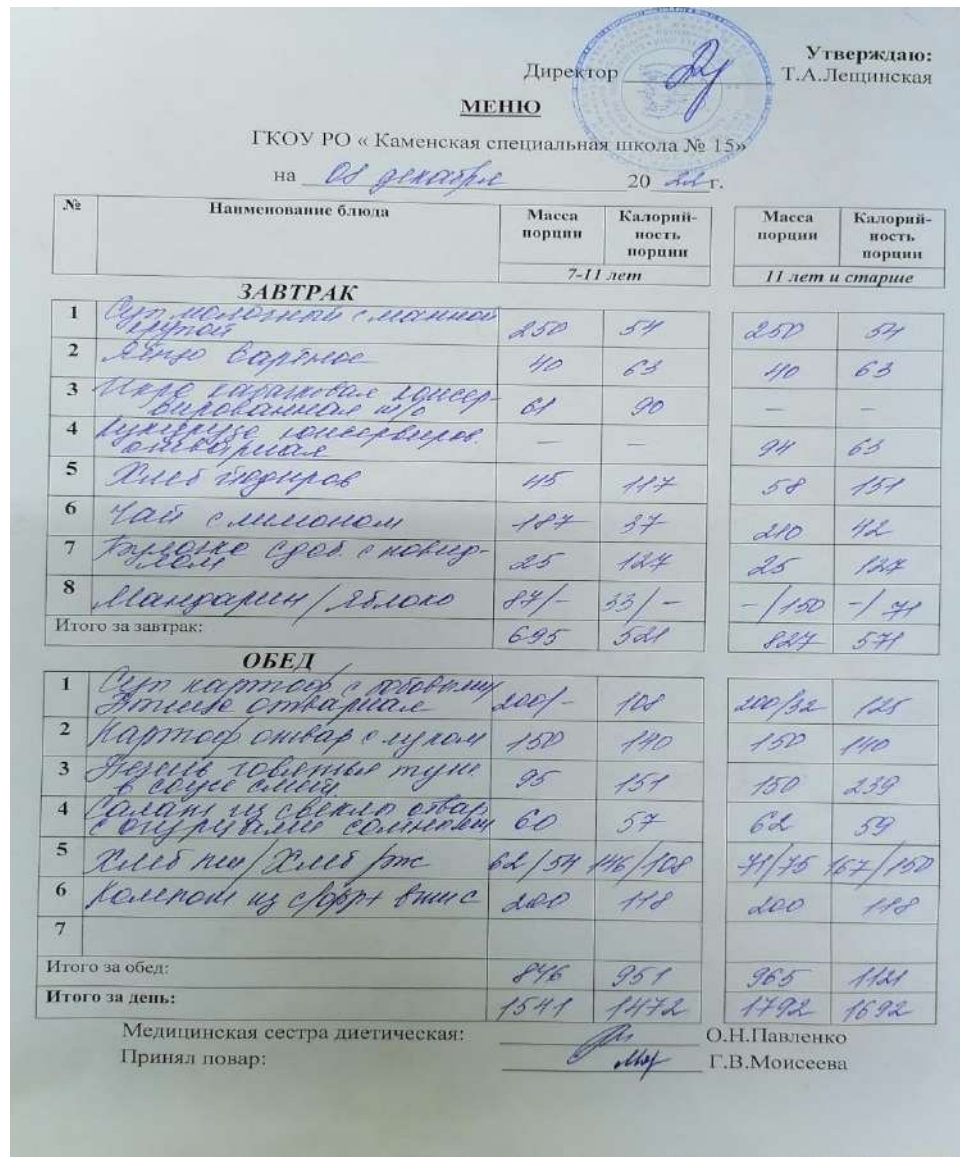 Утверждаю:
Директор Т.А.Лещинская
МЕНЮ
ГКОУ РО « Каменская специальная школа № 15»
на 08 декабря 2022г.
№ Наименование блюда Масса порции Калорий-ность порции Масса порции Калорий-ность порции
7-11 лет 11 лет и старше
ЗАВТРАК
1 Суп молочный с манной
крупой 250 54 250 54
2 Яйцо варёное 40 63 40 63
3 Икра кабачковая консер-
вированная п/о 61 90 – –
4 Кукуруза консервиров.
отварная – – 94 63
5 Хлеб йодиров 45 117 58 151
6 Чай с лимоном 187 37 210 42
7 Булочка сдоб. с повид-
лом 25 127 25 127
8 Мандарин/яблоко 87/- 33/- -/150 -/71
Итого за завтрак: 695 521 827 571
ОБЕД
1 Суп картоф с бобовыми/
Птица отварная 200/- 108 200/32 125
2 Картоф отвар с луком 150 140 150 140
3 Печень говяжья туше
в соусе смет 95 151 150 239
4 Салат из свеклы отвар
с огурцами солеными 60 57 62 59
5 Хлеб пш/Хлеб рж 62/54 146/108 71/75 167/150
6 Компот из с/фр+ вит с 200 118 200 118
7
Итого за обед: 846 951 965 1121
Итого за день: 1541 1472 1792 1692
Медицинская сестра диетическая: О.Н.Павленко
Принял повар: Г.В.Моисеева